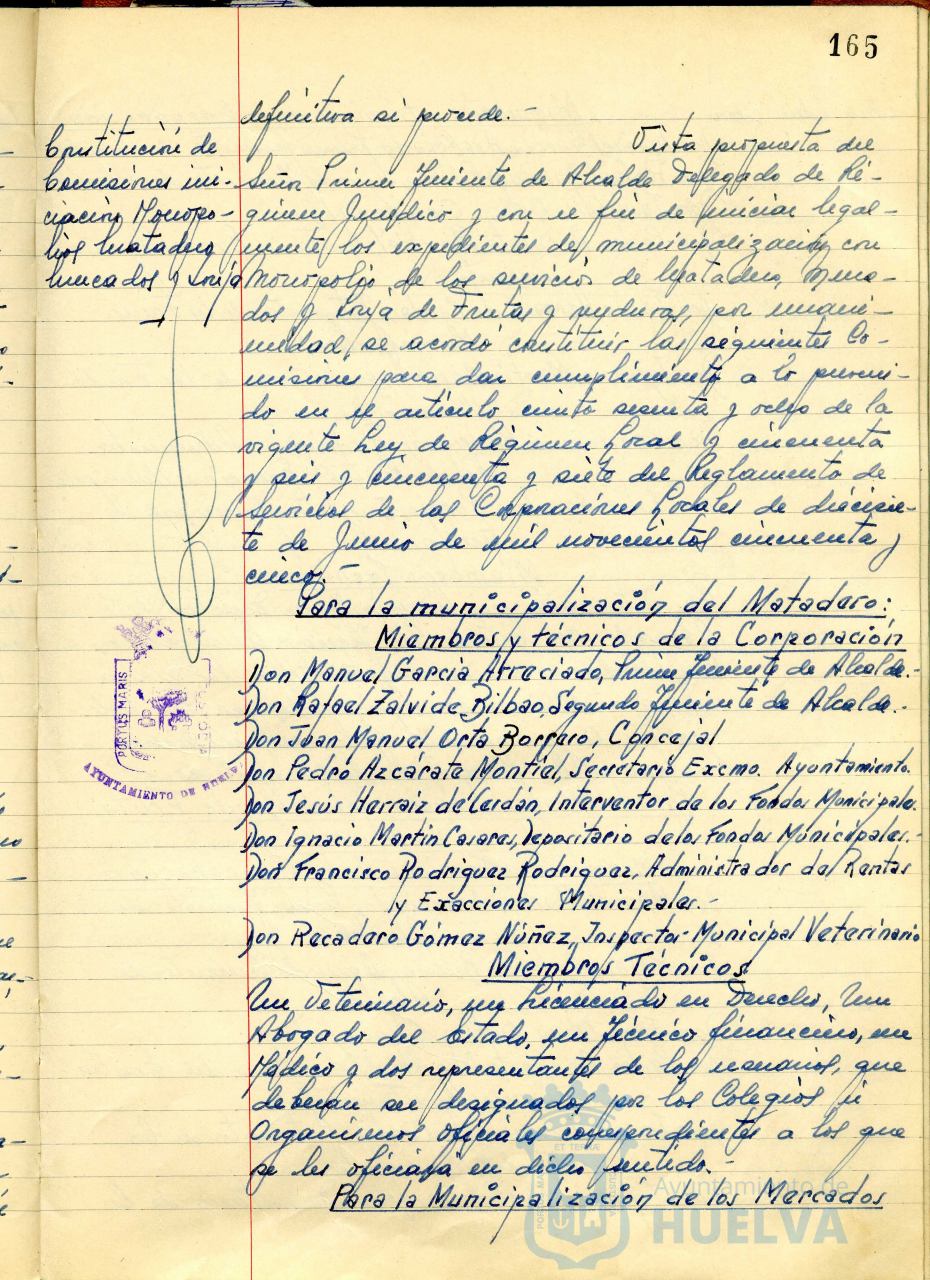 165
definitiva si procede.-
Constitución de
Comisiones ini-
ciación Monopo-
lios Matadero
Mercados y Lonja
Vista propuesta del
Señor Primer Teniente de Alcalde Delegado de Ré-
gimen Jurídico y con el fin de iniciar legal-
mente los expedientes de municipalización con
Monopolio de los servicios de Matadero, Merca-
dos y Lonja de Frutas y verduras, por unani-
midad se acordó constituir las siguientes Co-
misiones para dar cumplimiento a lo preveni-
do en el artículo ciento sesenta y ocho de la
vigente Ley de Régimen Local y cincuenta
y seis y cincuenta y siete del Reglamento de
Servicios de las Corporaciones Locales de diecisie-
te de Junio de mil novecientos cincuenta y
cinco.-
Para la municipalización del Matadero:
Miembros y técnicos de la Corporación
Don Manuel García Arreciado, Primer Teniente de Alcalde.-
Don Rafael Zalvide Bilbao, Segundo Teniente de Alcalde.-
Don Juan Manuel Orta Borrero, Concejal
Don Pedro Azcárate Montiel, Secretario Excmo. Ayuntamiento.
Don Jesús Herraiz de Cerdán, Interventor de los Fondos Municipales.
Don Ignacio Martín Casares, Depositario de los Fondos Municipales.-
Don Francisco Rodriguez Rodriguez, Administrador de Rentas
y Exacciones Municipales.-
Don Recadero Gómez Núñez, Inspector Municipal Veterinario
Miembros Técnicos
Un Veterinario, un Licenciado en Derecho, Un
Abogado del Estado, un Técnico financiero, un
Médico y dos representantes de los usuarios, que
deberán ser designados por los Colegios u
Organismos oficiales correspondientes a los que
se les oficiará en dicho sentido.-
Para la Municipalización de los Mercados
PORTUS MARIS
AYUNTAMIENTO DE HUELVA
Ayuntamiento de
HUELVA